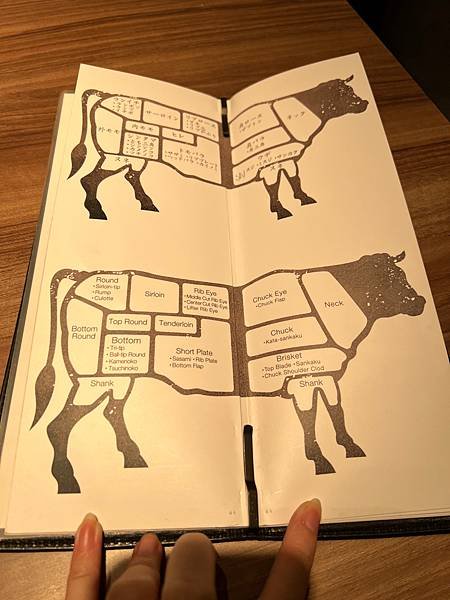 サーロイン
外モモ
内モモ
ヒレ
スネ
ネック
スネ
Round
•Sirloin-tip
•Rump
•Culotte
Sirloin
Rib Eye
•Middle Cut Rib Eye
•Center Cut Rib Eye
•Lifter Rib Eye
Chuck Eye
•Chuck Flap
Neck
Bottom
Round
Top Round
Tenderloin
Bottom
•Tri-tip
•Ball-tip Round
•Kamenoko
•Tsuchinoko
Short Plate
•Sasami •Rib Plate
•Bottom Flap
Chuck
•Kata-sankaku
Brisket
•Top Blade •Sankaku
•Chuck Shoulder Clod
Shank
Shank